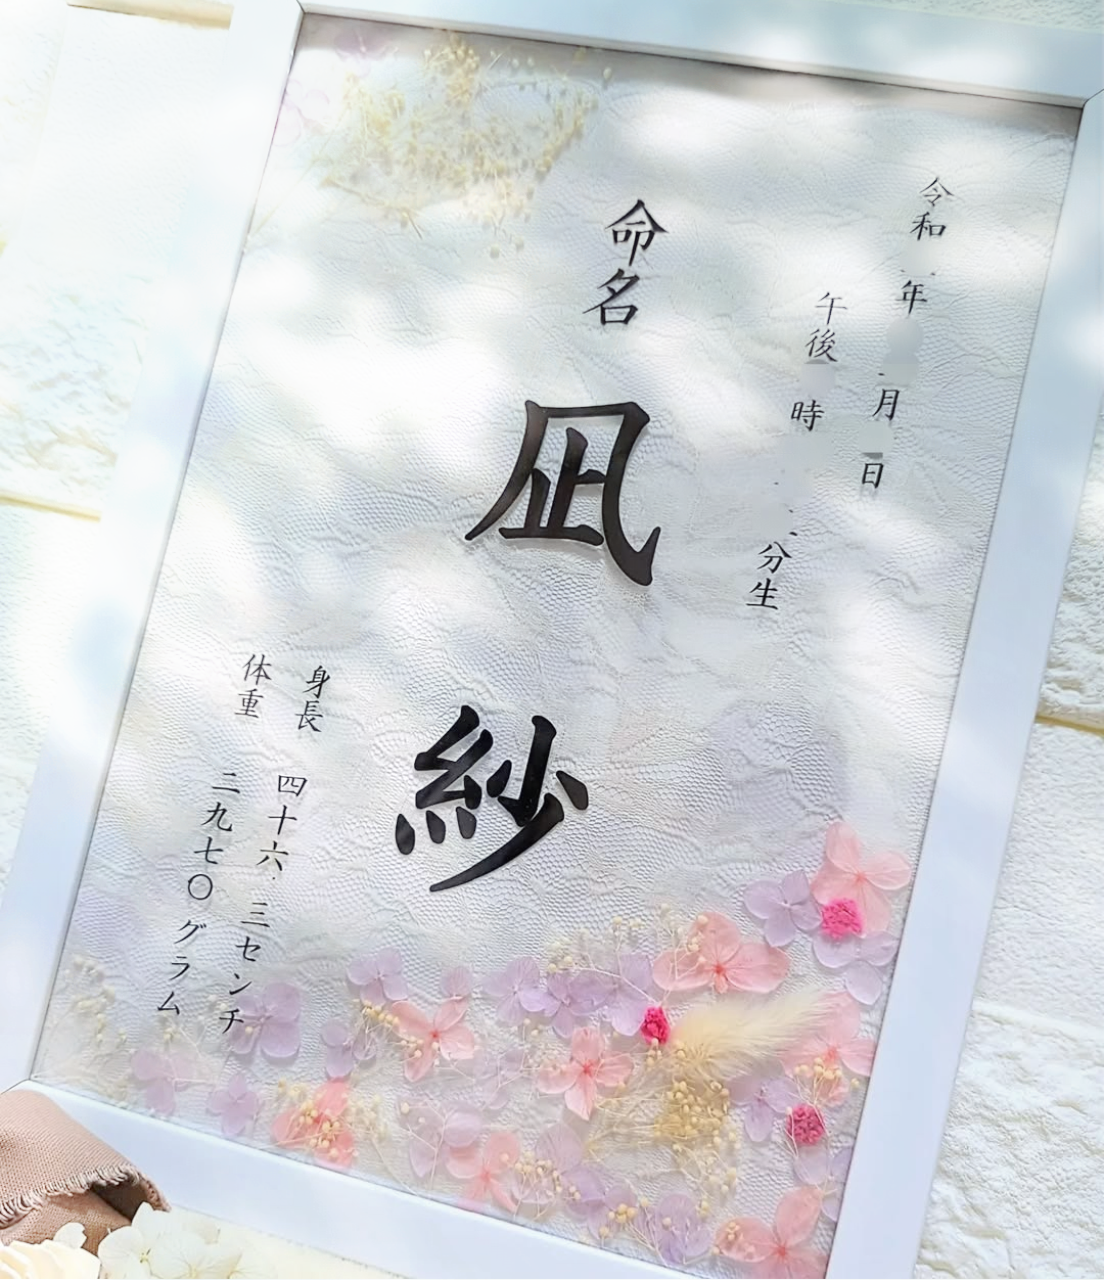 令和 年 月 日
午後 時 分生
命名
凪紗
身長 四十六.三センチ
体重 二九七〇グラム